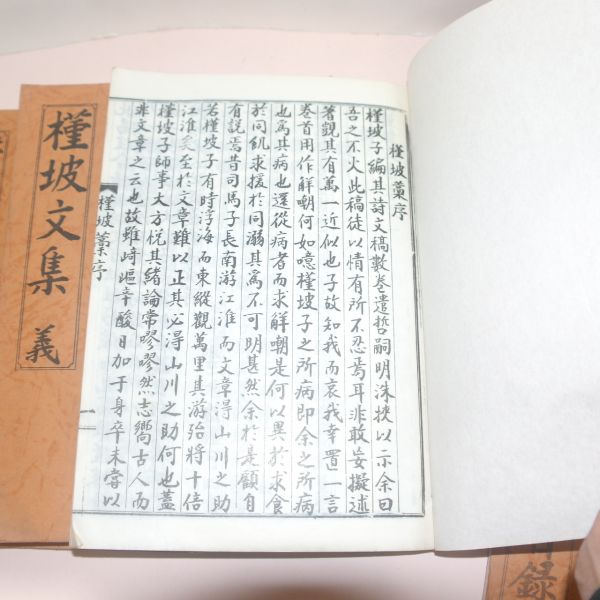 槿坡藁序
槿坡子編其詩文稿數卷遣哲嗣明洙挾以示余曰
吾之不火此稿徒以情有所不忍焉耳非敢妄擬述
著觀其有萬一近似也子故知我而哀我幸置一言
卷首用作解嘲何如噫槿坡子之所病即余之所病
也爲其病也還從病者而求解嘲是何以異於求食
於同飢求援於同溺其爲不可明甚然余於是顧自
有說焉昔司馬子長南游江淮而文章得山川之助
若槿坡子有時浮海而東縱觀萬里其游殆將十倍
江淮矣至於文章難以正其必得山川之助何也蓋
槿坡子師事大方悅其緒論常嘐嘐然志嚮古人而
非文章之云也故雖崎嶇辛酸日加于身卒未嘗以
槿坡藁序
一
槿坡文集
義
目錄